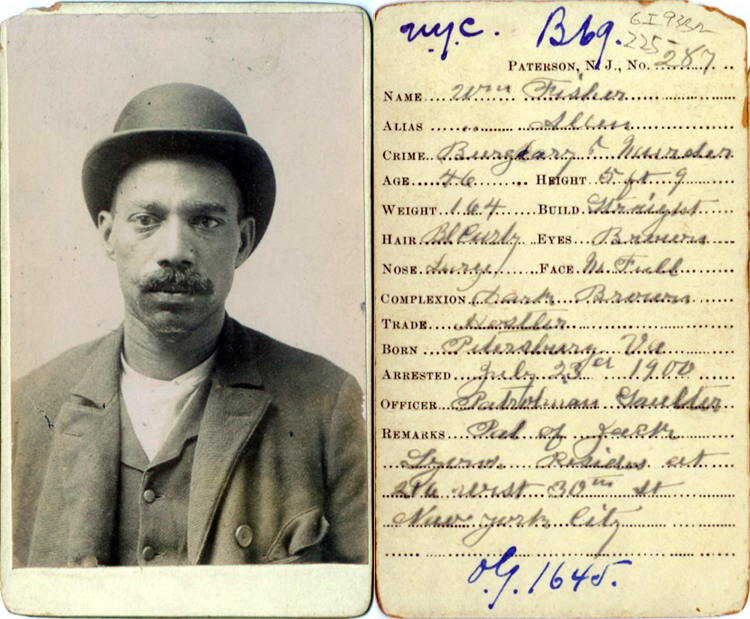 N.Y.C. Bbg. 6 I 9
225-
PATERSON, N. J., No. 287
NAME Wm Fisher
ALIAS Allen
CRIME Burglary & Murder
AGE 46 HEIGHT 5 ft 9
WEIGHT 164 BUILD Straight
HAIR Bl Curly EYES Brown
NOSE Large FACE M. Full
COMPLEXION Dark Brown
TRADE Hostler
BORN Petersburg Va
ARRESTED July 23rd 1900
OFFICER Patrolman Gaulter
REMARKS Pal of Jack
Resides at
West 30th St
New York City
O.G. 1645.